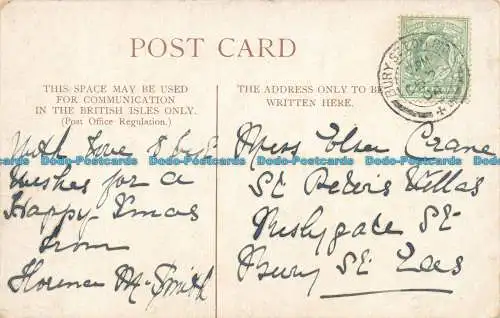 POST CARD
THIS SPACE MAY BE USED
FOR COMMUNICATION
IN THE BRITISH ISLES ONLY.
(Post Office Regulation.)
With love & best
wishes for a
Happy Xmas
from
Florence M. Smith
THE ADDRESS ONLY TO BE
WRITTEN HERE.
Miss Elsie Crane
St Peters Villas
Risbygate St
Bury St Eds
BURY ST
Postcards Postcards Postcards Postcards Postcards Postcards